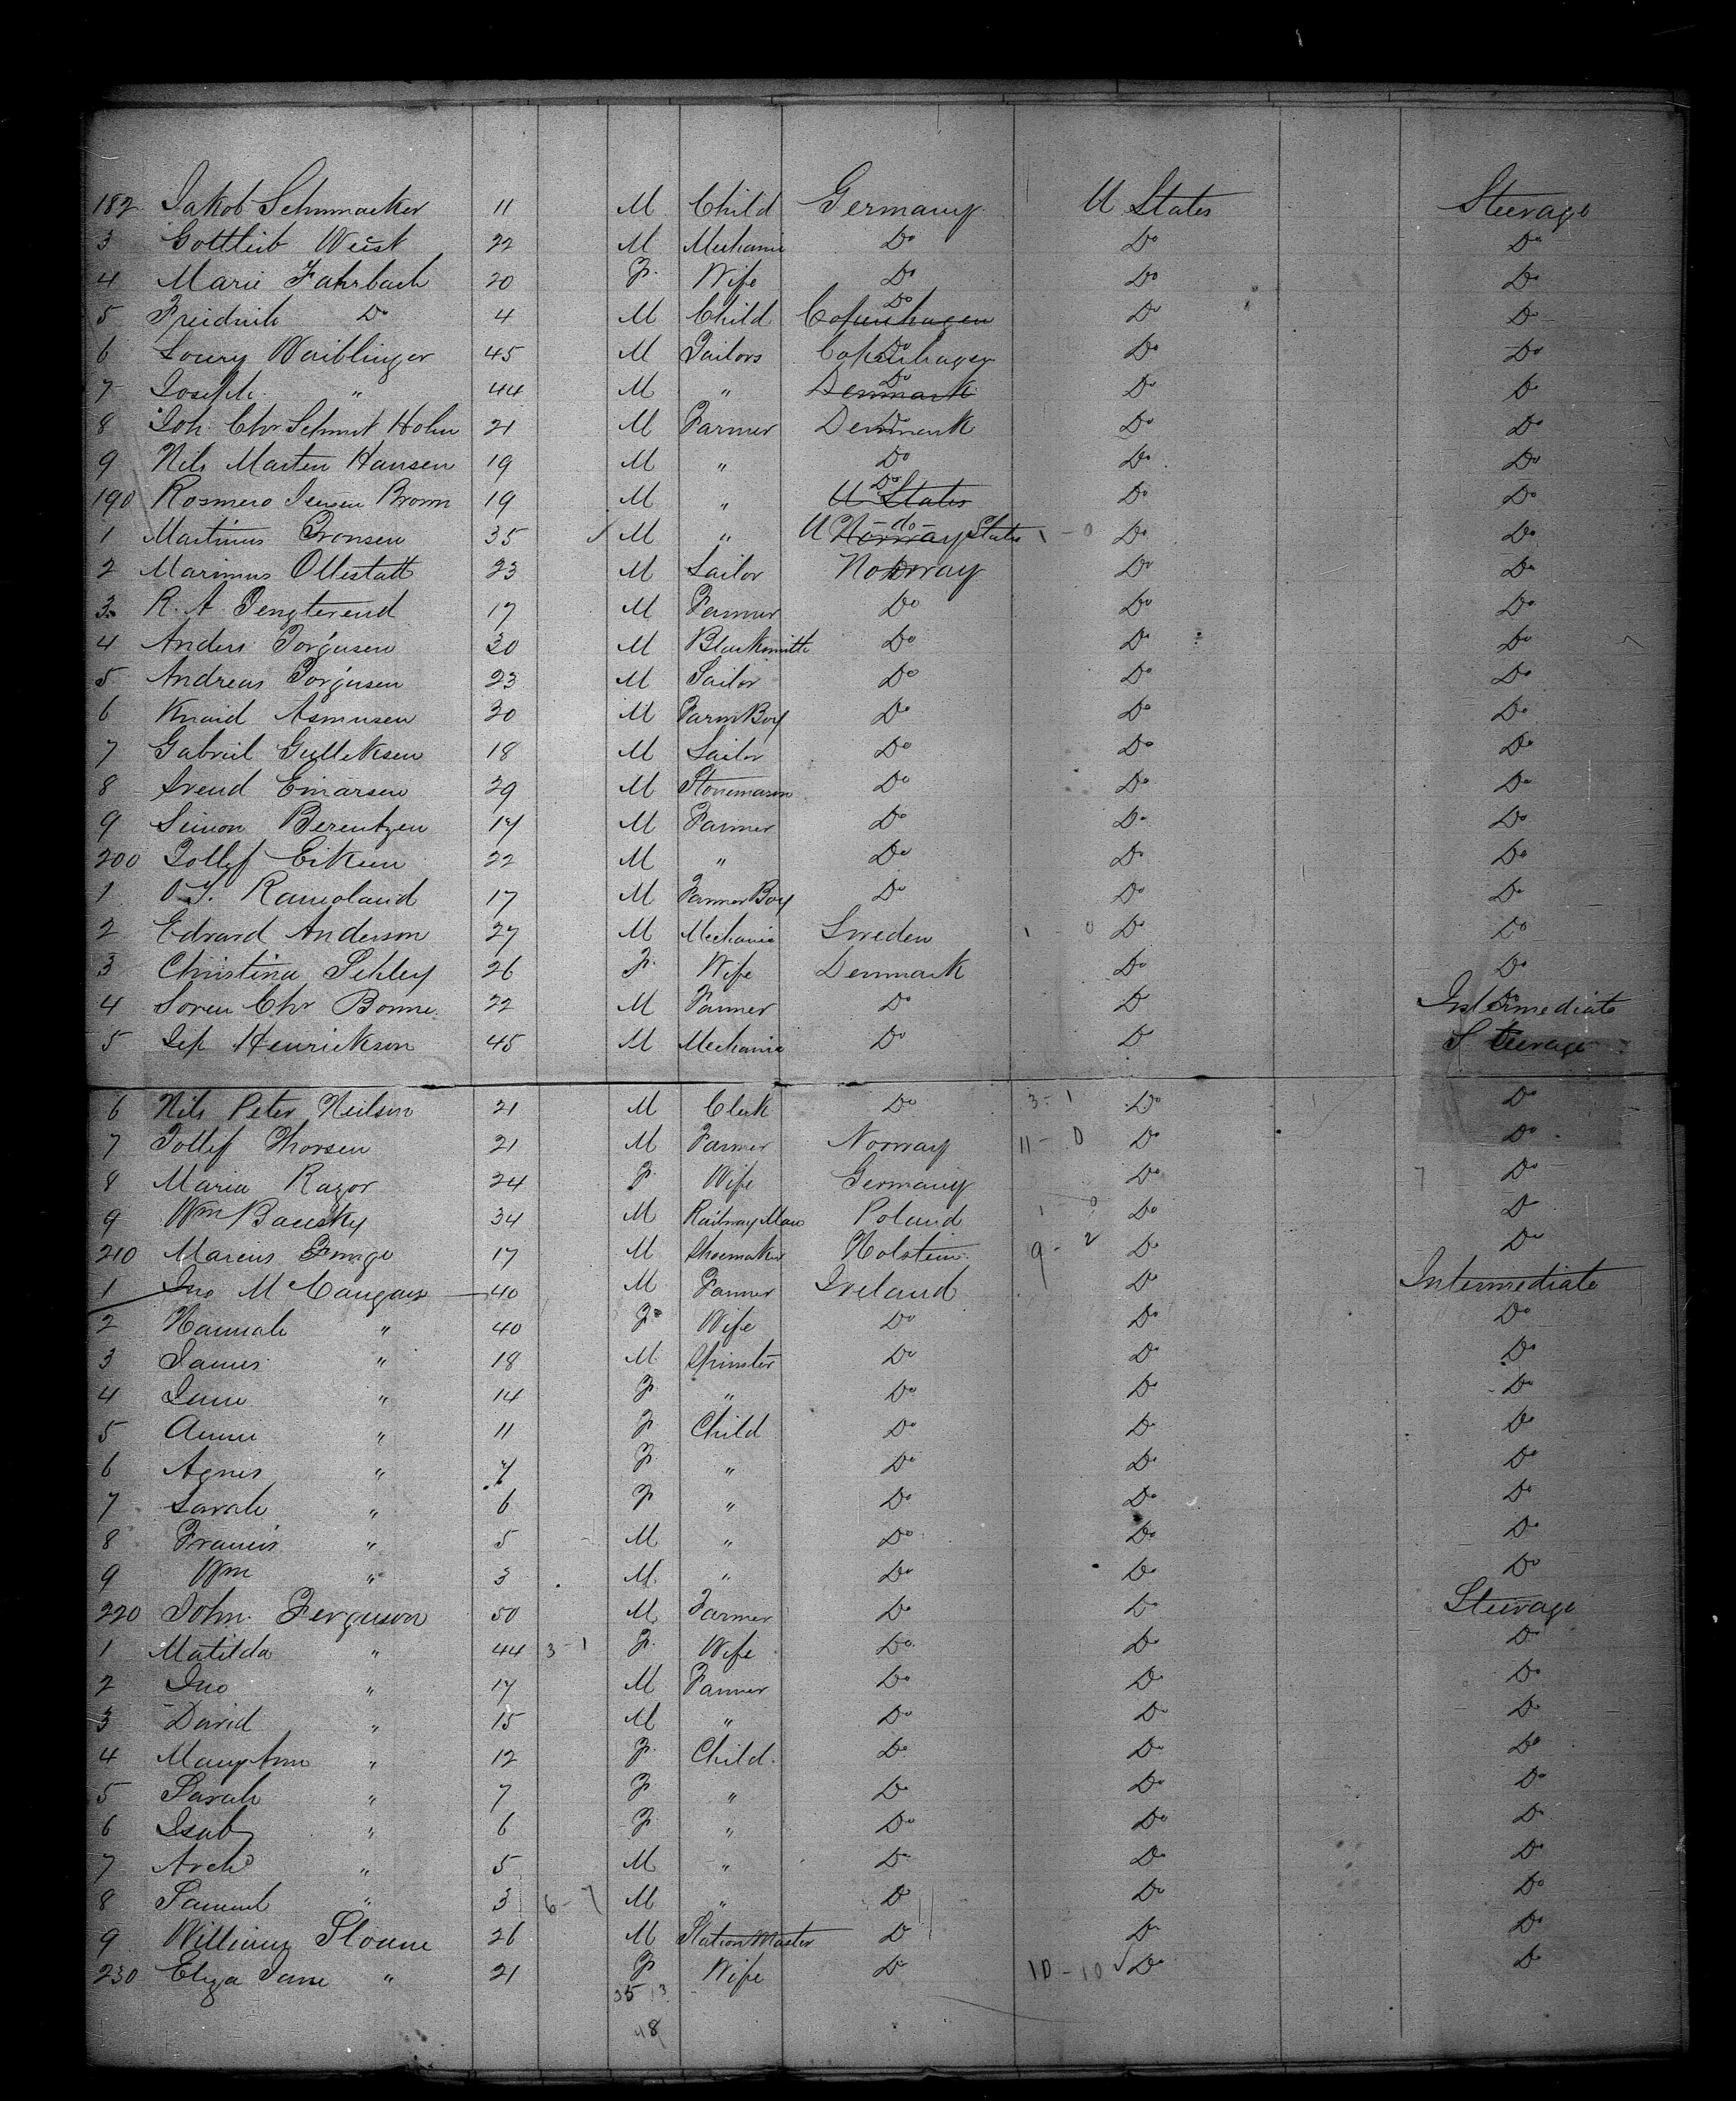 182 Jakob Schumacker 11 M Child Germany U States Steerage
3 Gottlieb Weist 22 M Mechanic Do Do Do
4 Marie Fahrbach 20 F. Wife Do Do Do
5 Freidrich Do 4 M Child Copenhagen Do Do Do
6 Waiblinger 45 M Tailors Copenhagen Do Do Do
7 Joseph " 44 M " Denmark Do Do Do
8 Joh. Chr Schmit Holm 21 M Farmer Denmark Do Do
9 Nils Marten Hansen 19 M " Do Do Do
190 Rosmero Jensen Brown 19 M " U States Do Do Do
1 Martinus 35 M " U Norway States do 1 - 0 Do Do
2 Marinus Ollestatt 23 M Sailor Norway Do Do
3 R. A. 17 M Farmer Do Do Do
4 Anders Torgusen 30 M Blacksmith Do Do Do
5 Andreas Torgusen 23 M Sailor Do Do Do
6 Knaid Asmusen 30 M Farm Boy Do Do Do
7 Gabriel Gulleksen 18 M Sailor Do Do Do
8 Svend Einarsen 29 M Stonemason Do Do Do
9 Simon Berentzen 17 M Farmer Do Do Do
200 Tollef Eikeen 22 M " Do Do Do
1 O. T. Ramoland 17 M Farmer Boy Do Do Do
2 Edvard Anderson 27 M Mechanic Sweden 1 0 Do Do
3 Christina Schley 26 F. Wife Denmark Do Do
4 Soren Chr Bonne 22 M Farmer Do Do Intermediate
5 Jep Henrickson 45 M Mechanic Do Do Steerage
6 Nils Peter Neilson 21 M Clerk Do 3 - 1 Do Do
7 Tollef Thorsen 21 M Farmer Norway 11 - 0 Do Do
8 Maria Razor 24 F. Wife Germany Do Do
9 Wm Bausky 34 M Railway Man Poland 1 - 0 Do Do
210 Marcus 17 M Shoemaker Holstein 9 - 2 Do Do
1 Jno McCangais 40 M Farmer Ireland Do Intermediate
2 Hannah " 40 F. Wife Do Do Do
3 James " 18 M Spinster Do Do Do
4 Jane " 14 F. " Do Do Do
5 Anne " 11 F. Child Do Do Do
6 Agnes " 7 F. " Do Do Do
7 Sarah " 6 F. " Do Do Do
8 Francis " 5 M " Do Do Do
9 Wm " 3 M " Do Do Do
220 John Ferguson 50 M Farmer Do Do Steerage
1 Matilda " 44 3 - 1 F. Wife Do Do Do
2 Jno " 17 M Farmer Do Do Do
3 David " 15 M " Do Do Do
4 Mary Ann " 12 F. Child Do Do Do
5 Sarah " 7 F. " Do Do Do
6 Isab " 6 F. " Do Do Do
7 Archd " 5 M " Do Do Do
8 Samuel " 3 6 - 7 M " Do Do Do
9 William Sloane 26 M Station Master Do Do Do
230 Eliza Jane " 21 F. Wife Do 10 - 10 Do Do
35 13
48